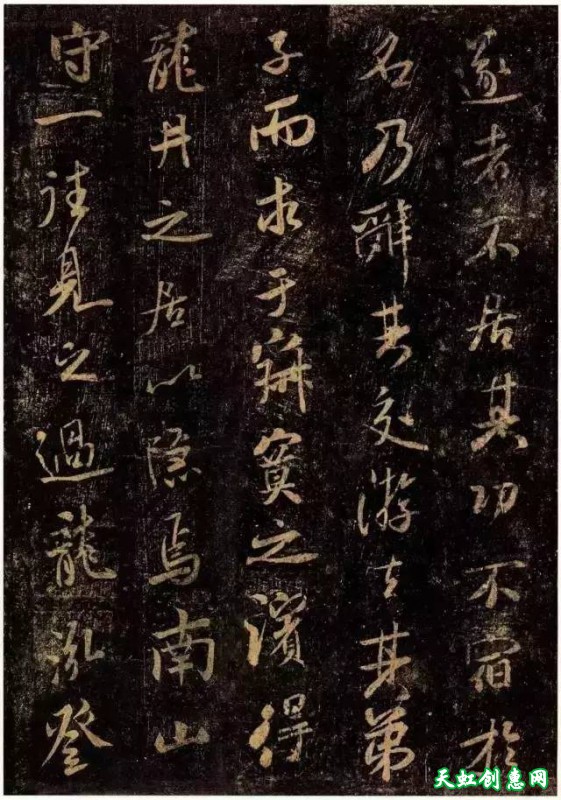 遂者不居其功不宿於
名乃辭其交游去其弟
子而求于寂寞之濱得
龍井之居以隱焉南山
守一往見之過龍泓登
天虹创惠网